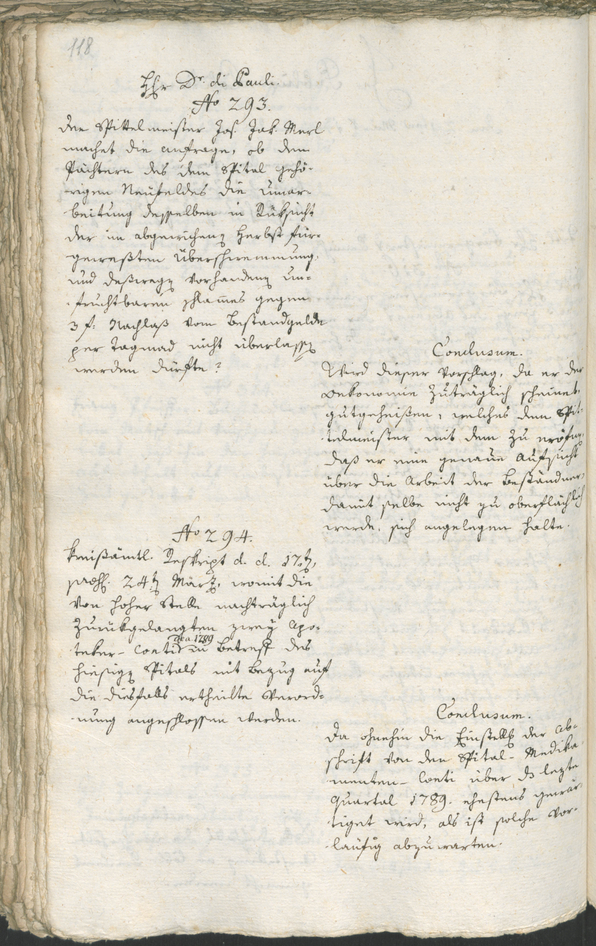 118
Hr Dr. di Pauli
No 293.
Der Spitlmeister Jos. Jak. Merl
machet die anfrage, ob dem
Pächtern des dem Spital gehö-
rigen Neufeldes die Umar-
beitung desselben in Rüksicht
der im abgewichenen Herbst für-
geweßten Überschwemmung,
und deßwegen vorhandenen un-
fruchtbaren Schlames gegen
3 f. Nachlaß vom Bestandgelde
per Tagmad nicht überlassen
werden dürfte?
Conclusum.
Wird dieser Vorschlag, da er der
Oekonomie zuträglich scheinet,
gutgeheißen, welches dem Spi-
talmeister mit dem zu eröfnen,
daß er eine genaue Aufsicht
über die Arbeit der Beständner,
damit selbe nicht zu oberflächlich
werde, sich angelegen halte.
No 294.
Kreisämtl. Reskript d. d. 17ten,
praes. 24ten März, womit die
von hoher Stelle nachträglich
zurükgelangten zwey Apo-
teker-Conti de a. 1789 in Betreff des
hiesigen Spitals mit Bezug auf
die diesfalls ertheilte Verord-
nung angeschlossen werden.
Conclusum.
Da ohnehin die Einstellung der Ab-
schrift von den Spital-Medika-
menten-Conti über das letzte
Quartal 1789. ehestens gewär-
tiget wird, als ist solche vor-
läufig abzuwarten.